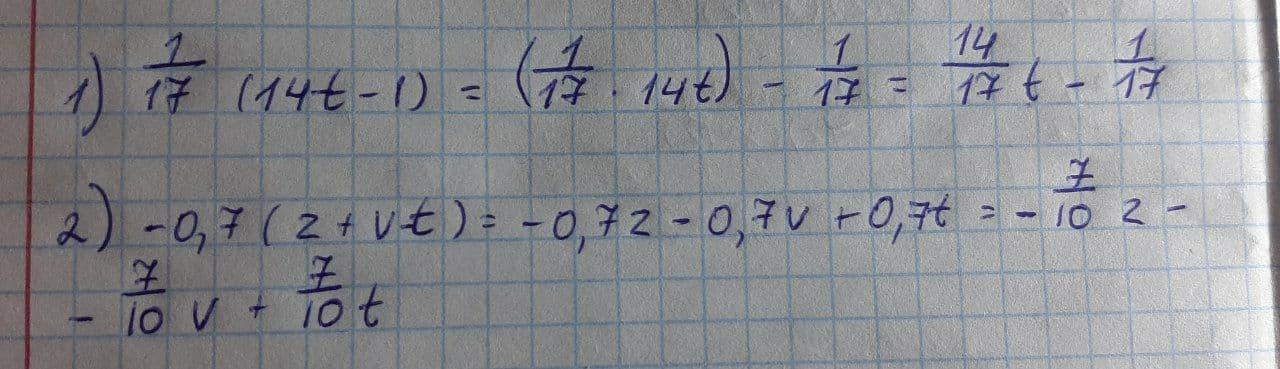 1) 1/17 (14t - 1) = (1/17 · 14t) - 1/17 = 14/17 t - 1/17
2) -0,7 (z + v-t) = -0,7z - 0,7v + 0,7t = - 7/10 z -
- 7/10 v + 7/10 t